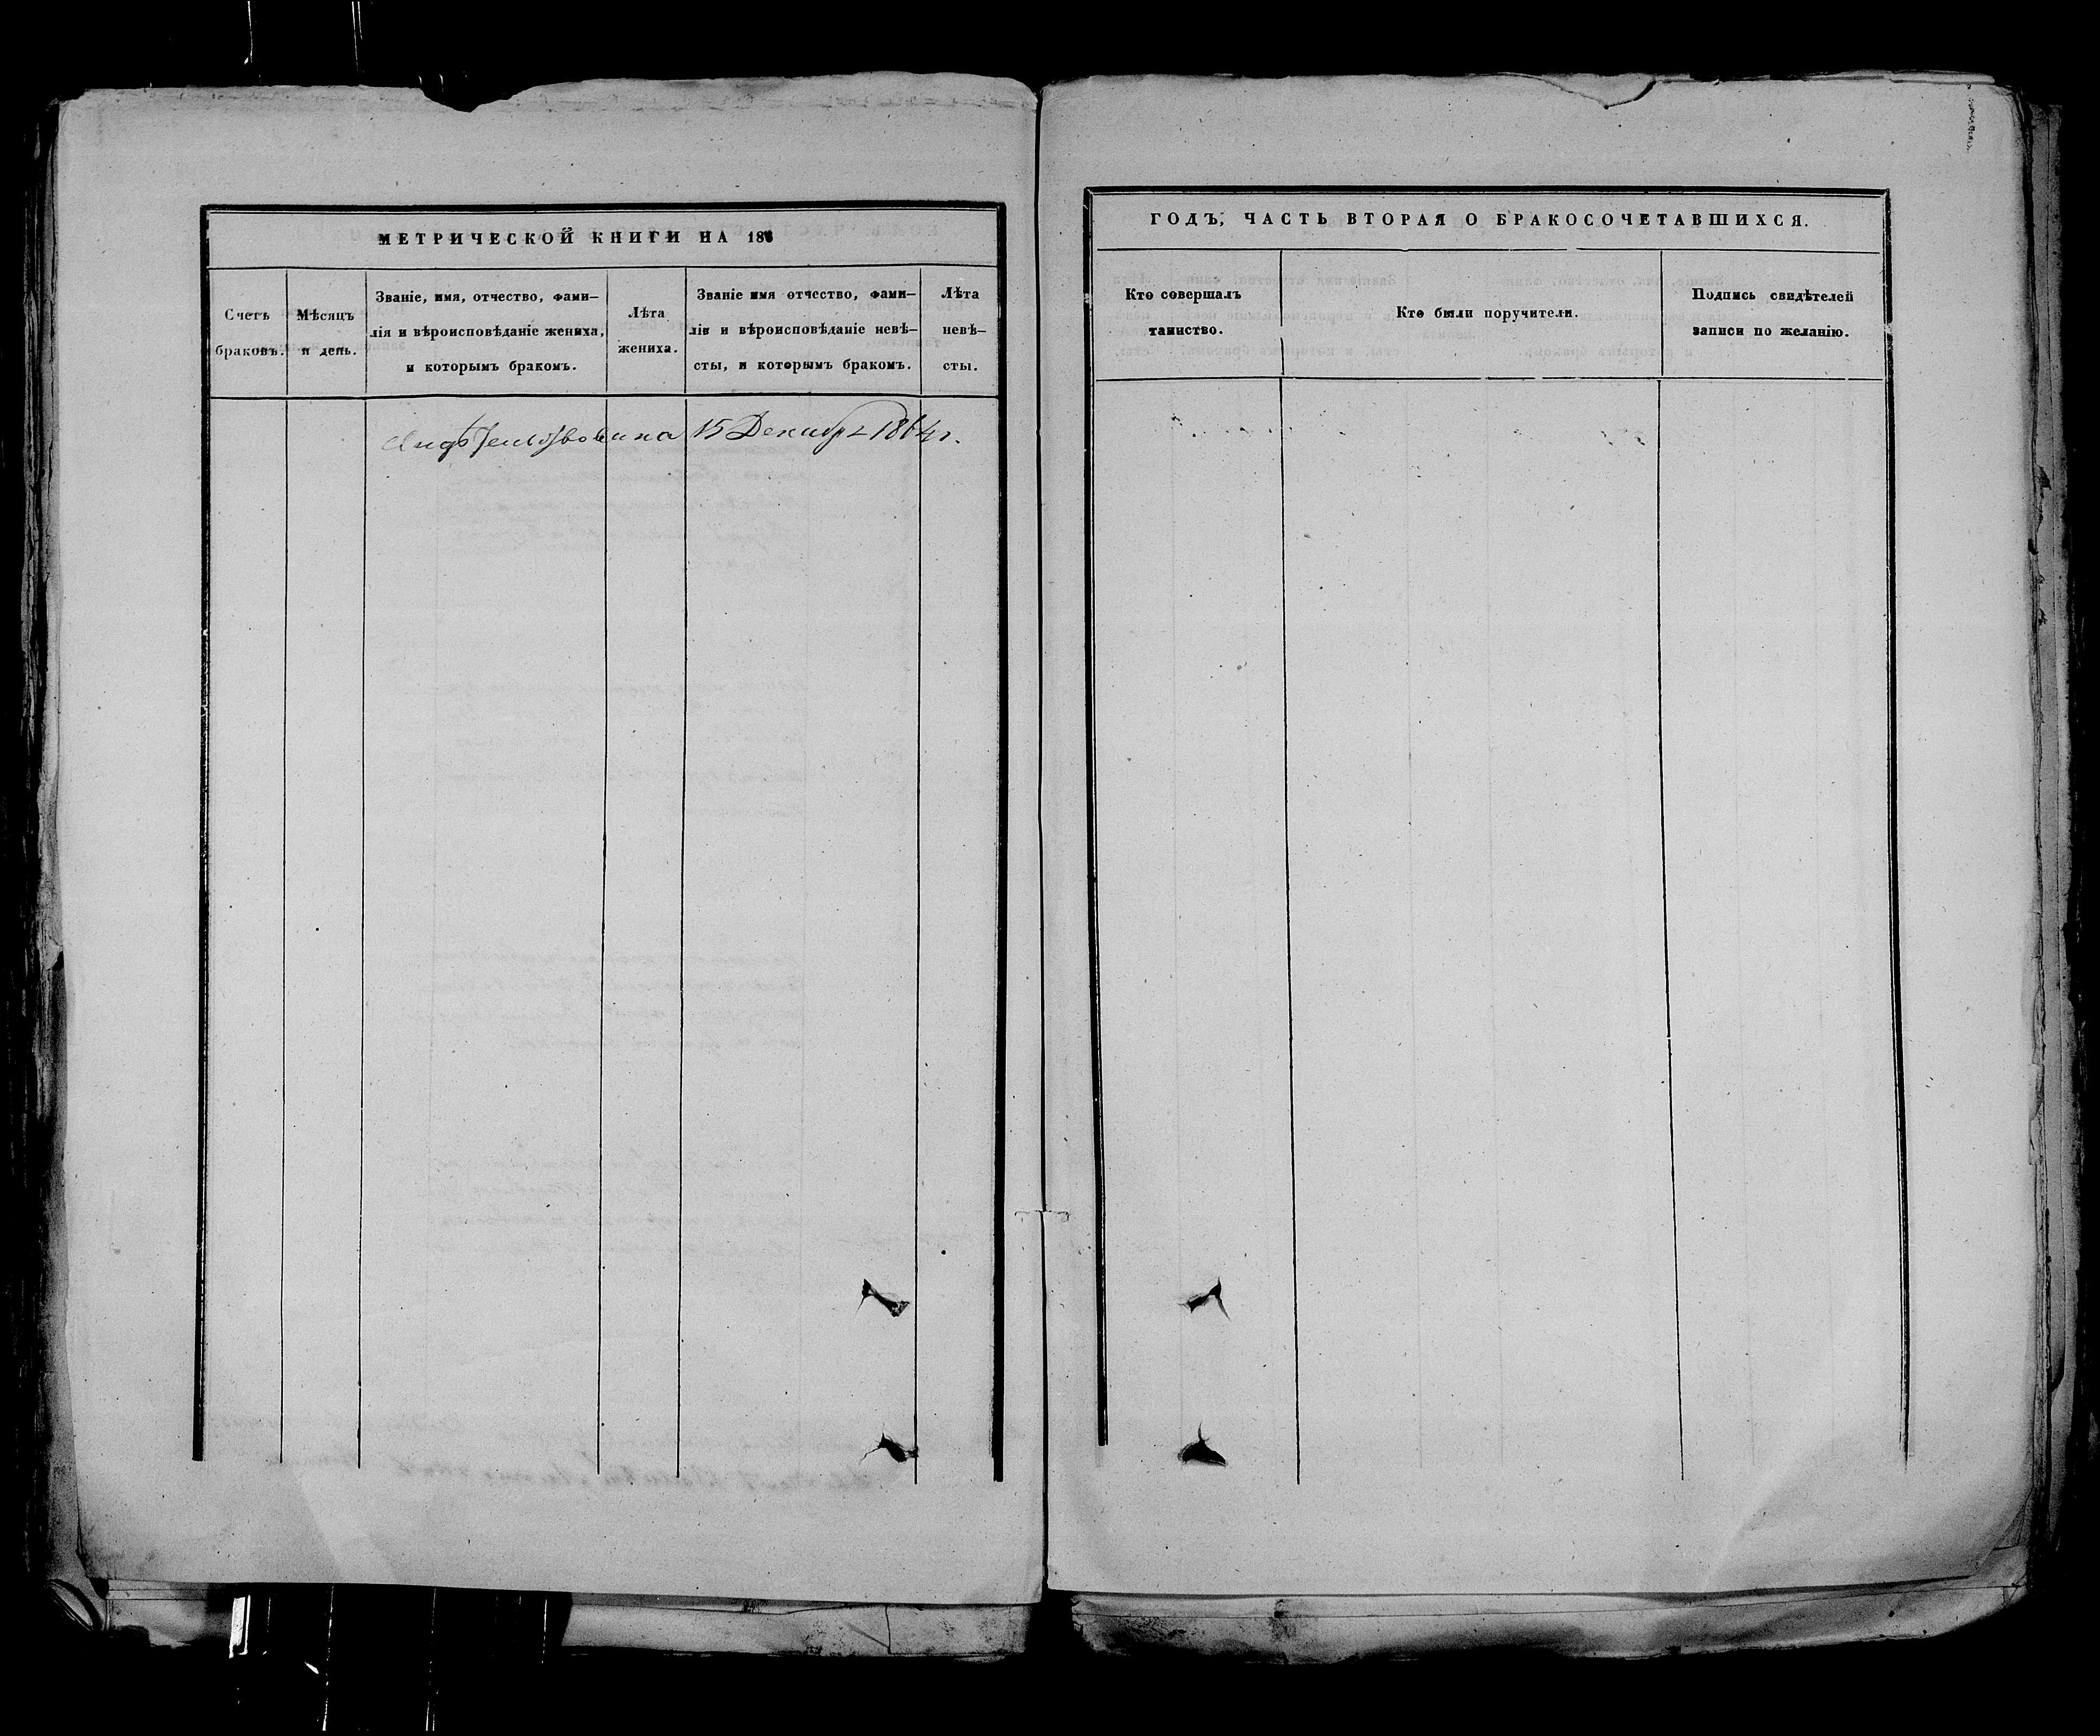 МЕТРИЧЕСКОЙ КНИГИ НА 186
Счетъ браковъ.
Мѣсяцъ и день.
Званіе, имя, отчество, фами-
лія и вѣроисповѣданіе жениха,
и которымъ бракомъ.
Лѣта
жениха.
Званіе имя отчество, фами-
лія и вѣроисповѣданіе невѣ-
сты, и которымъ бракомъ.
Лѣта
невѣ-
сты.
15 Декабря 1864 г.
ГОДЪ, ЧАСТЬ ВТОРАЯ О БРАКОСОЧЕТАВШИХСЯ.
Кто совершалъ
таинство.
Кто были поручители.
Подпись свидѣтелей
записи по желанію.